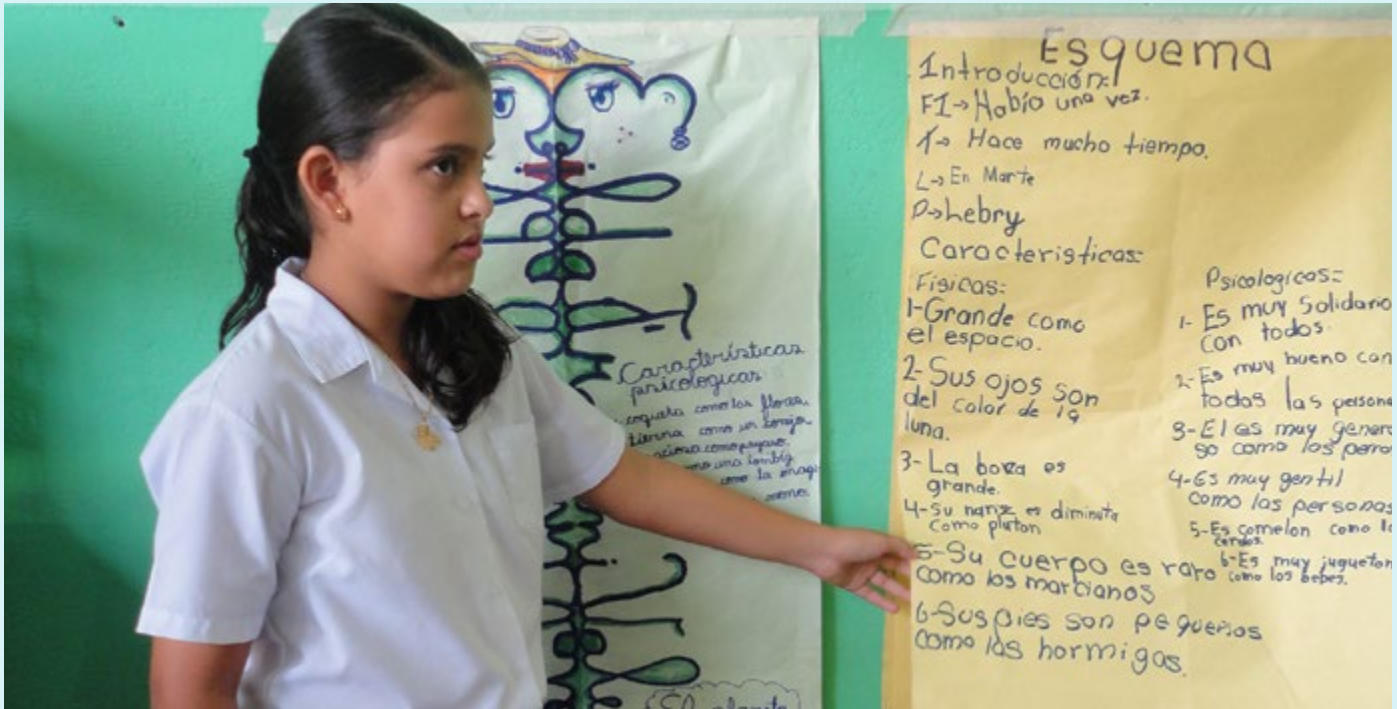 Características
psicologicas
coqueta como las flores.
tierna como un conejo.
como
como la
El planeta
Esquema
Introducción:
FI→Había una vez.
T→ Hace mucho tiempo.
L→ En Marte
P→Lebry
Caracteristicas:
Fisicas:
1-Grande como
el espacio.
2-Sus ojos son
del color de la
luna.
3-La boca es
grande.
4-Su nariz es diminuta
como pluton
5-Su cuerpo es raro
como los marcianos
6-Sus pies son pequeños
como las hormigas.
Psicologicas:
1- Es muy solidario
con todos.
2-Es muy bueno con
todas las persona
3-El es muy gener
so como los perro
4-Es muy gentil
como las personas
5-Es comelon como lo
cerdos.
6-Es muy jugueton
como los bebes.